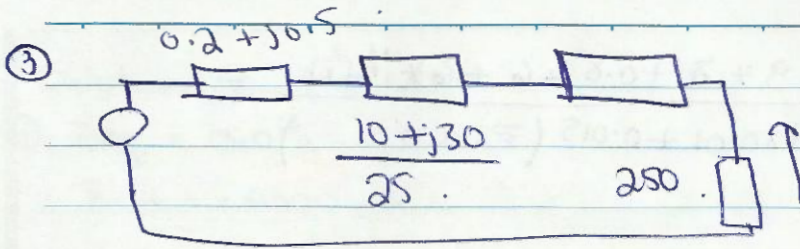 ③
0.2 + j0.5
10 + j30
25
250